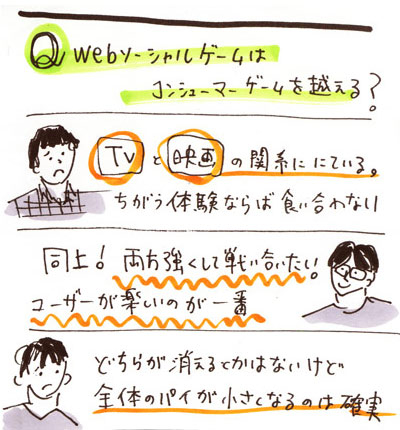 Q Webソーシャルゲームは
コンシューマーゲームを越える?
TVと映画の関係ににている。
ちがう体験ならば食い合わない
同上!両方強くして戦い合いたい!
ユーザーが楽しいのが一番
どちらが消えるとかはないけど
全体のパイが小さくなるのは確実